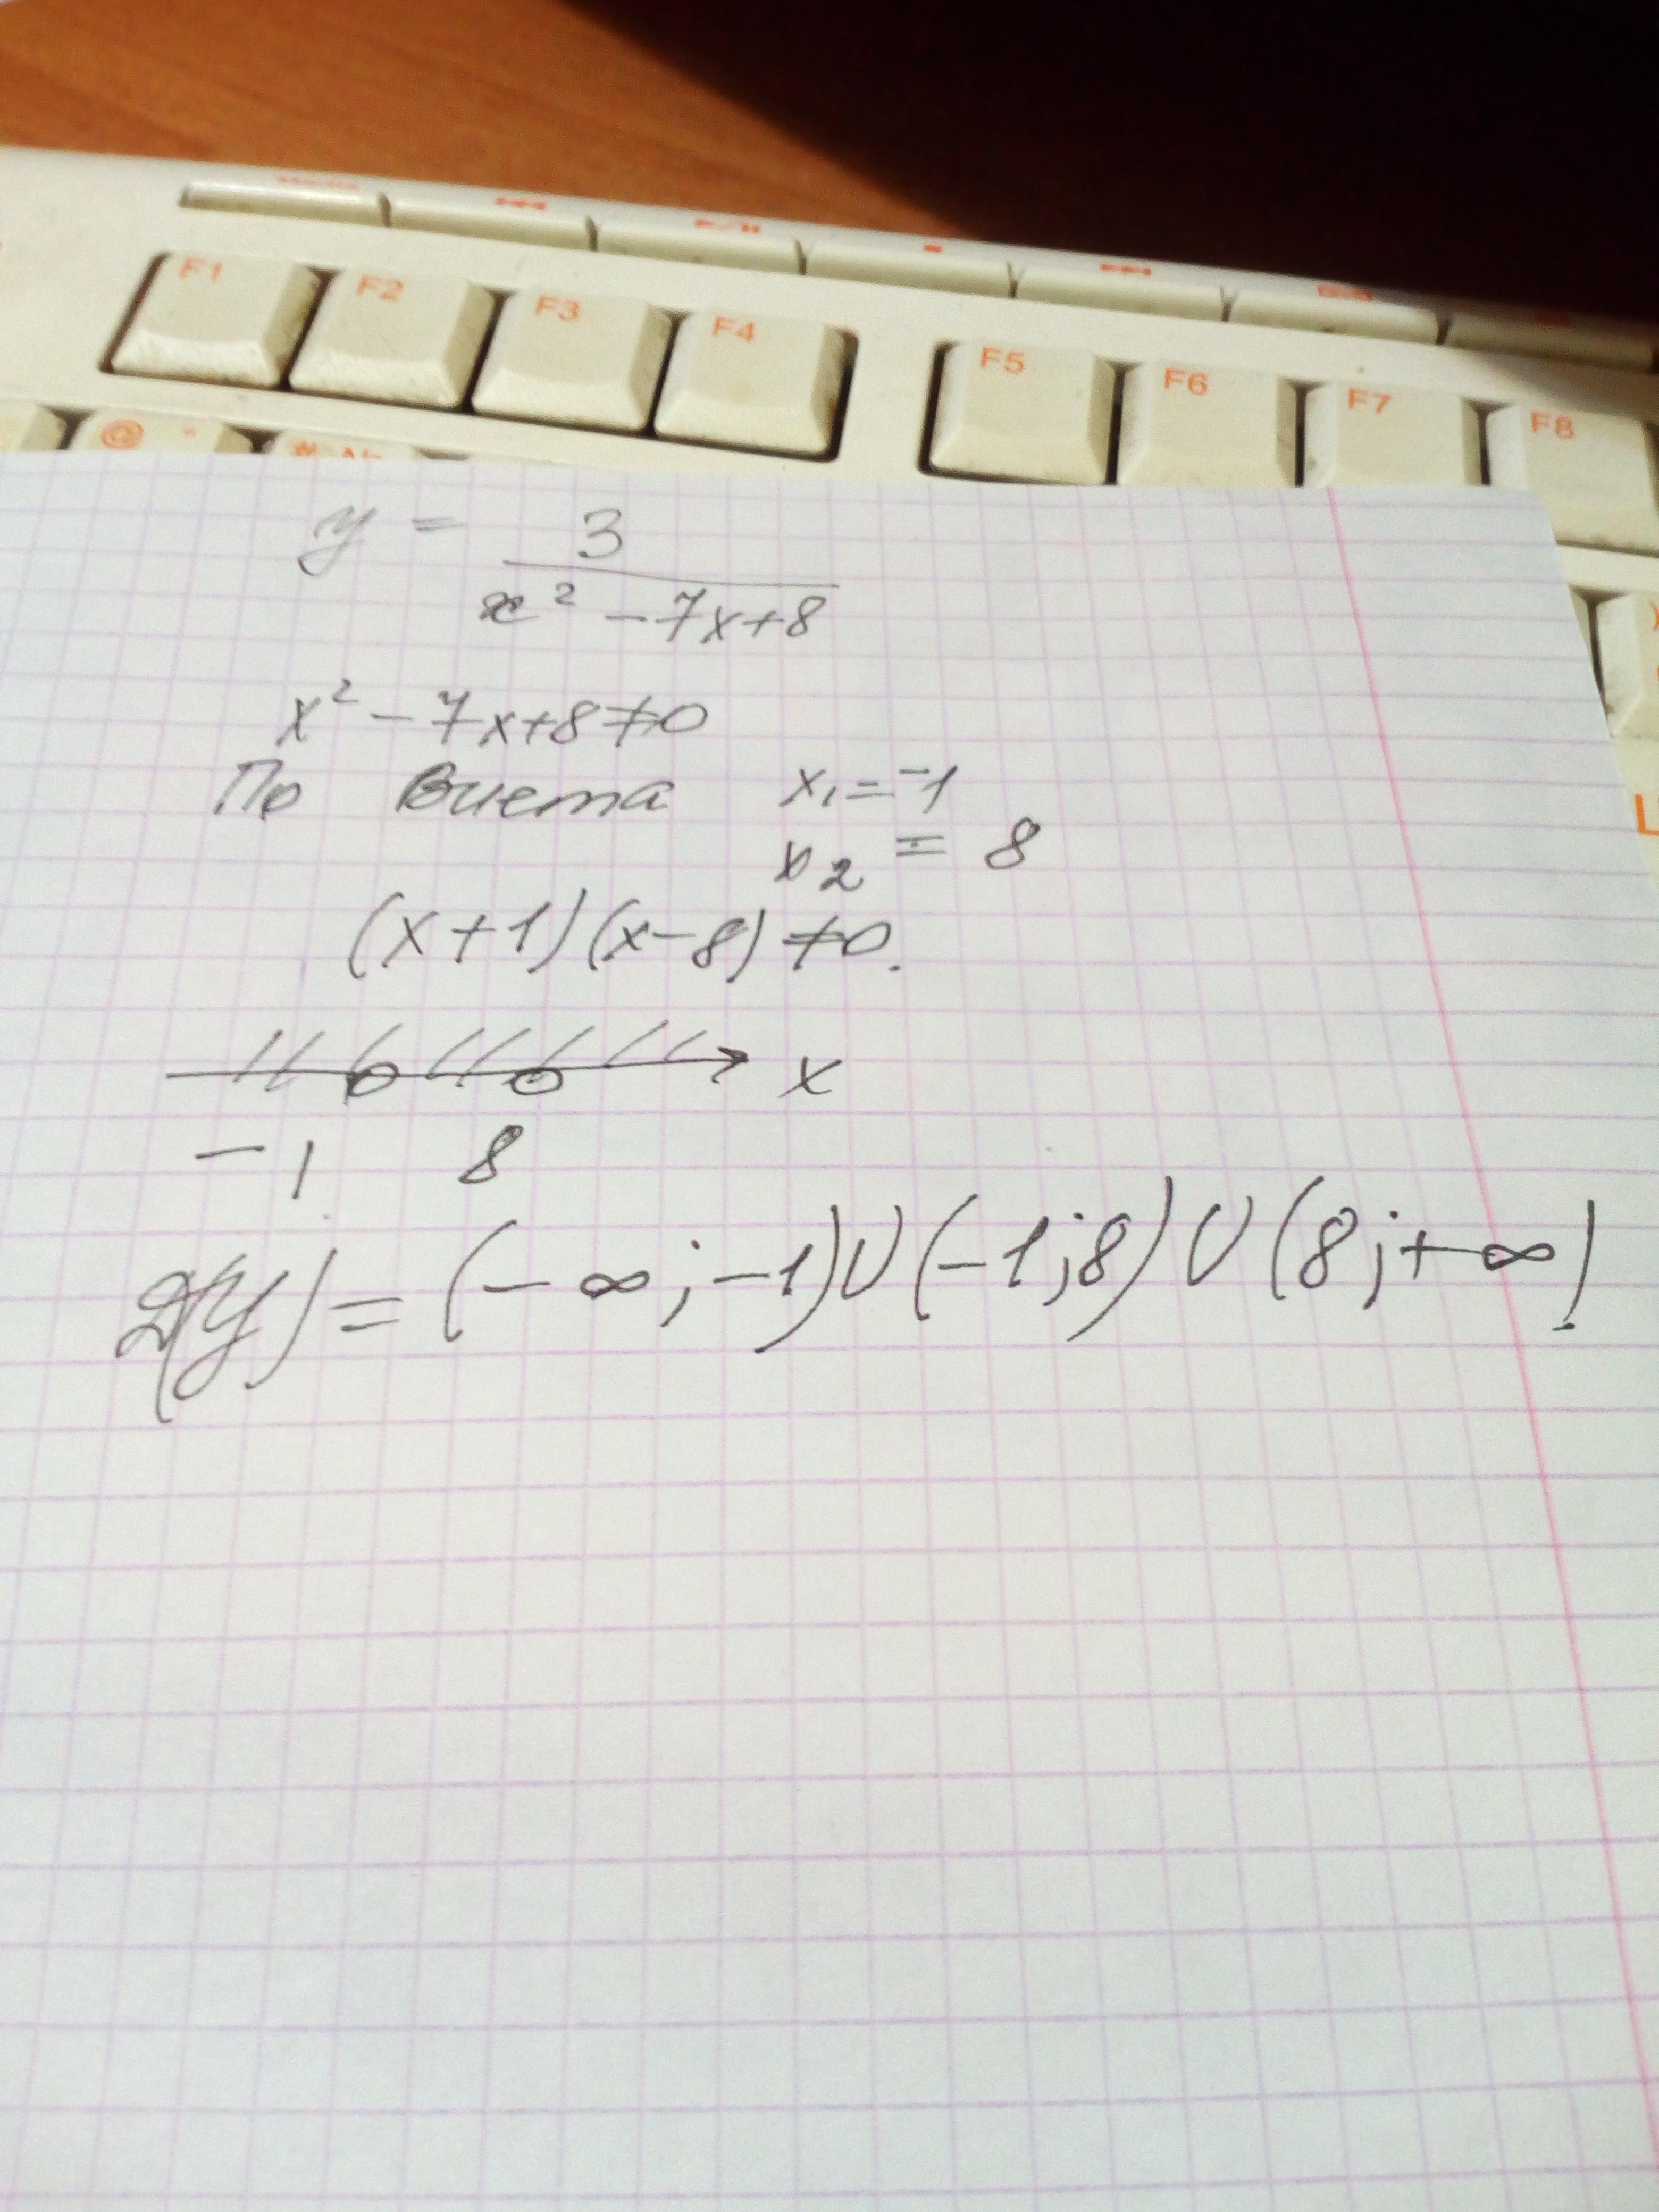 F1 F2 F3 F4 F5 F6 F7 F8
@ " # №
y = 3 / (x² - 7x+8)
x² - 7x+8≠0
По Виета x₁=-1
x₂ = 8
(x+1)(x-8)≠0.
x
-1 8
D(y)=(-∞;-1)∪(-1;8)∪(8;+∞)